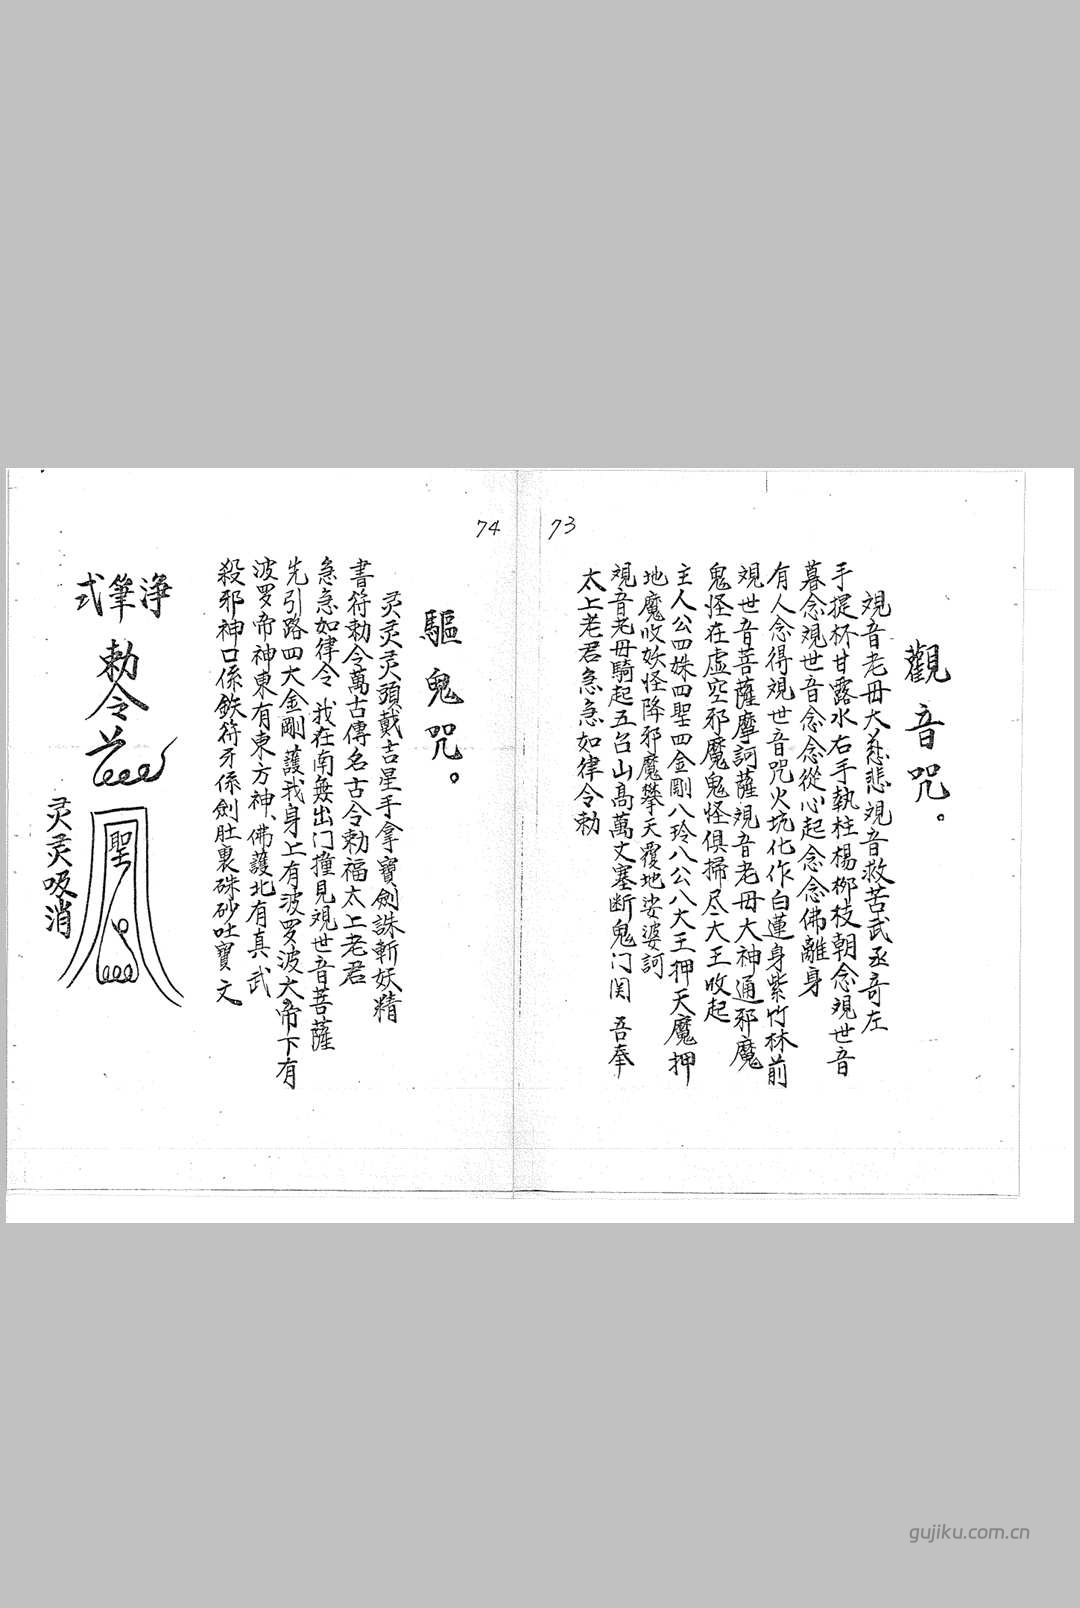 73
觀音咒。
覌音老毋大慈悲覌音救苦武丞竒左
手提杯甘露水右手執柱楊柳枝朝念覌世音
暮念覌世音念念從心起念念佛離身
有人念得覌世音咒火坑化作白蓮身紫竹林前
覌世音菩薩摩訶薩覌音老毋大神通邪魔
鬼怪在虛空邪魔鬼怪俱掃尽大王收起
主人公四姝四聖四金剛八玲八公八大王押天魔押
地魔收妖怪降邪魔攀天覆地娑婆訶
覌音老毋騎起五台山高萬丈塞断鬼门関 吾奉
太上老君急急如律令勅
74
驅鬼咒。
灵灵灵頭戴吉星手拿寶劍誅斬妖精
書符勅令萬古傳名古令勅福太上老君
急急如律令 我在南無出门撞見覌世音菩薩
先引路四大金剛護我身上有波罗波大帝下有
波罗帝神東有東方神、佛護北有真武
殺邪神口係鉄符牙係劍肚裏硃砂吐寶文
浄筆式
勅令
聖
灵灵吸消
gujiku.com.cn